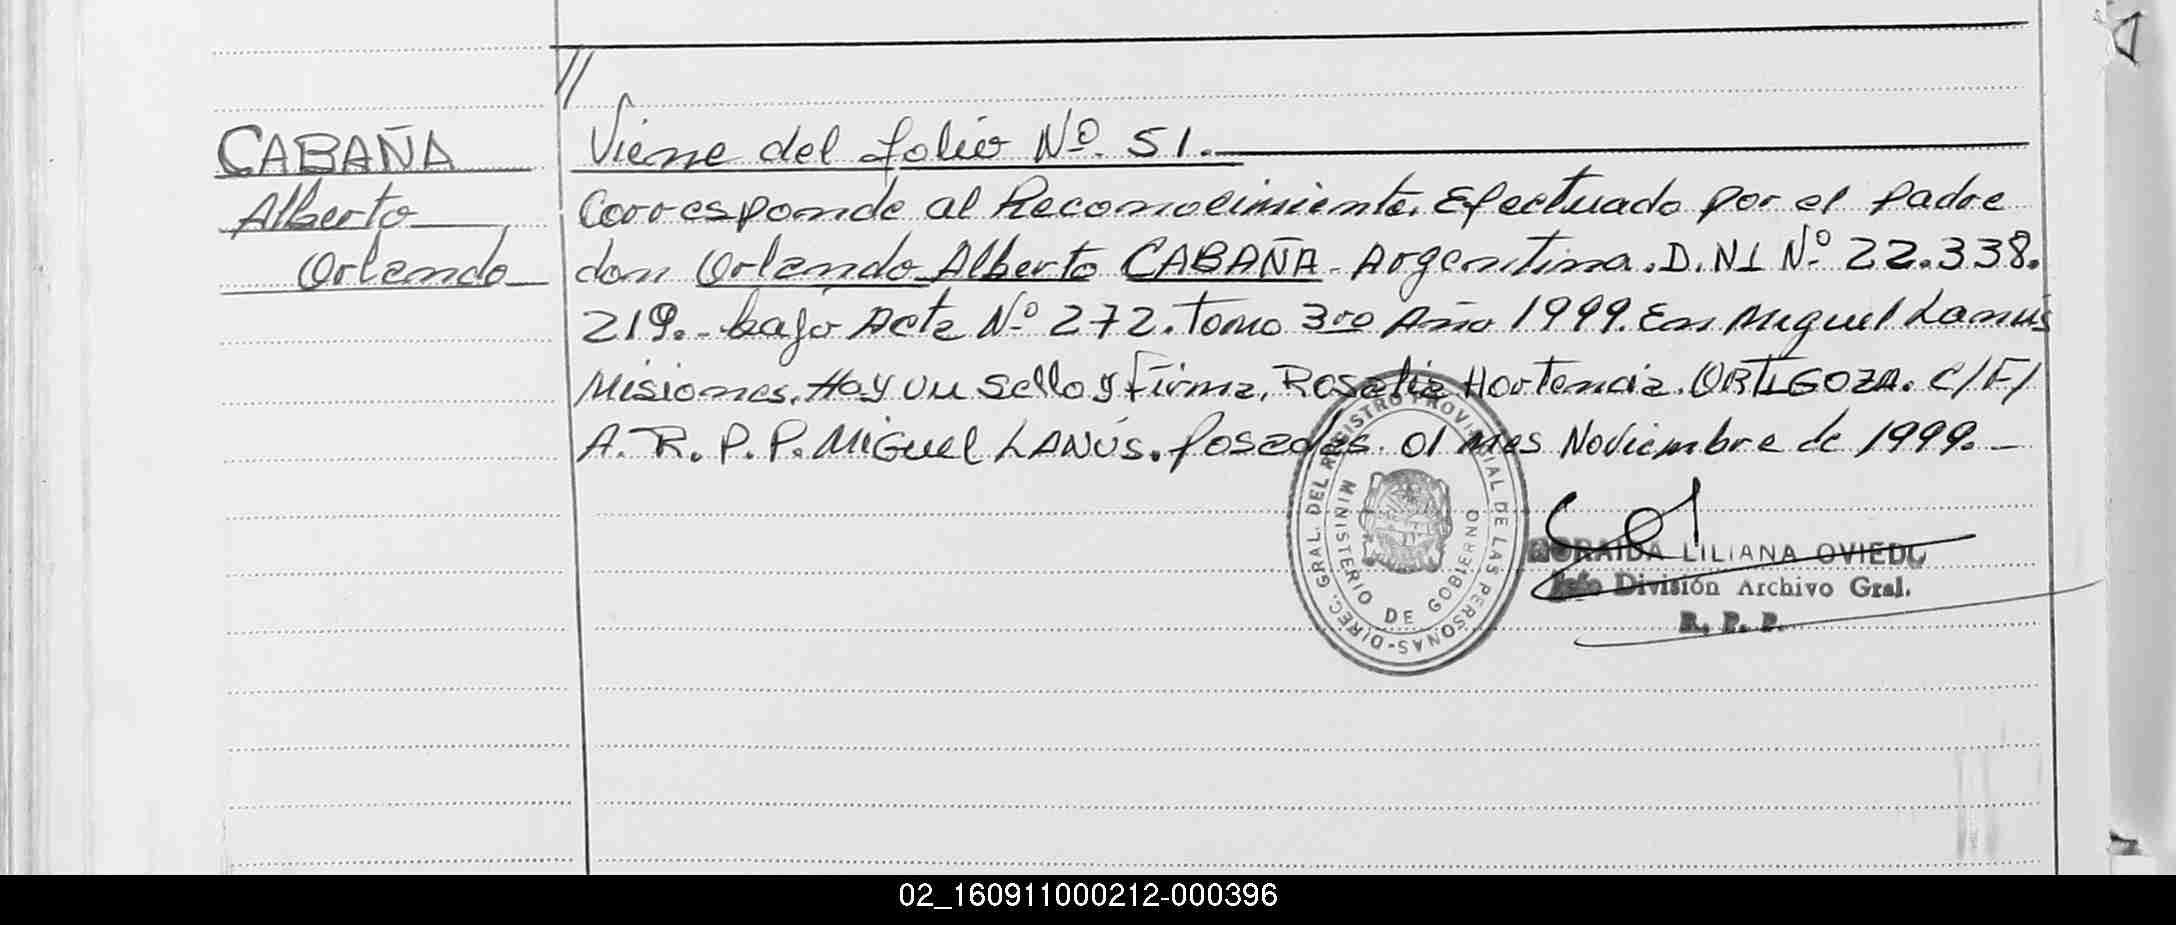 //
CABAÑA
Alberto
Orlando
Viene del folio Nº. 51.
Corresponde al Reconocimiento. Efectuado por el padre
don Orlando Alberto CABAÑA. Argentina. D.NI Nº 22.338.
219.- bajo Acta Nº 272. Tomo 3ro Año 1999. En Miguel Lanús
Misiones. Hay un sello y Firma. Rosalia Hortencia. ORTIGOZA. C/F/
A. R. P. P. MIGUEL LANÚS. Posadas. 01 mes Noviembre de 1999.-
DIREC. GRAL. DEL REGISTRO PROVINCIAL DE LAS PERSONAS-
MINISTERIO DE GOBIERNO
LILIANA OVIEDO
Jefe División Archivo Gral.
R. P. P.
02_160911000212-000396